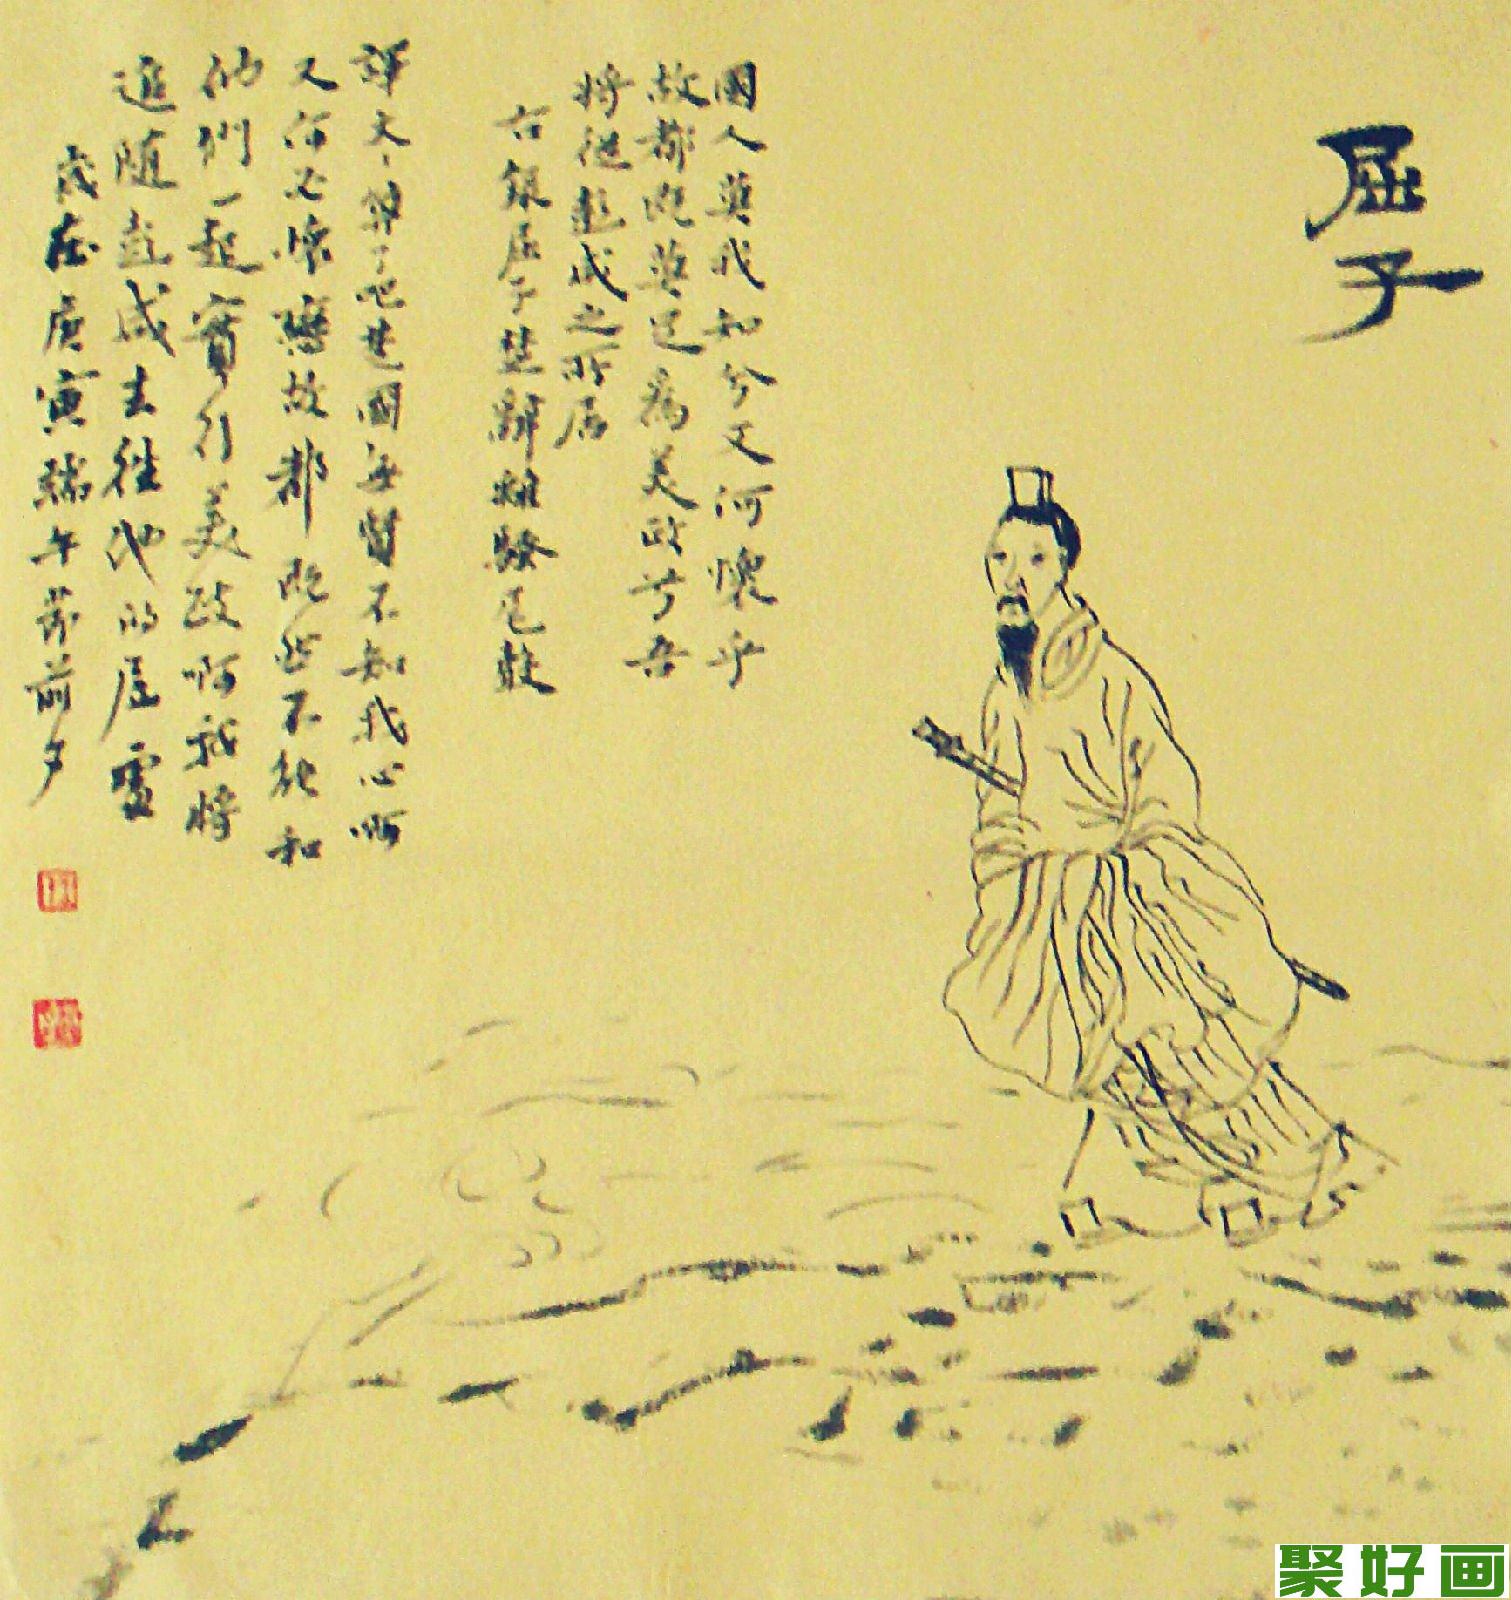 屈子
國人莫我知兮又何懷乎
故都既莫足為美政兮吾
将從彭咸之所居
右録屈子楚辭離騷尾段
譯文：算了吧楚國無賢不知我心啊
又何必懷戀故都既然不能和
他們一起實行美政啊我将
追随彭咸去往他的居處
歲在庚寅端午節前夕
聚好画